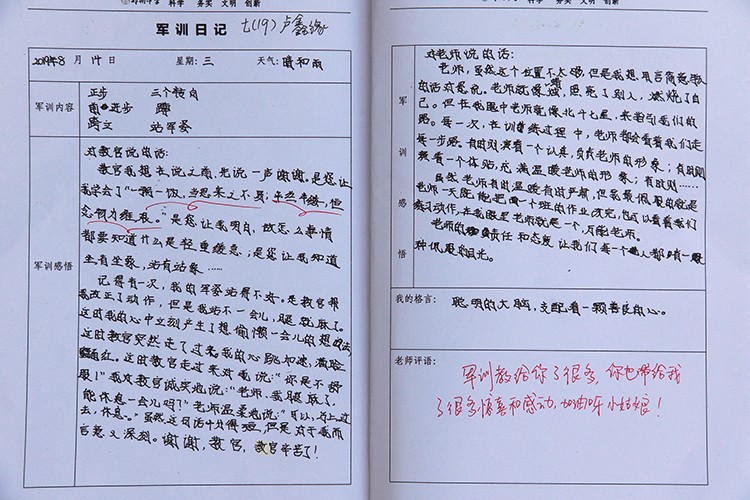 科学 务实 文明 创新
军训日记 七(19) 卢鑫缘
2019年8月14日 星期:三 天气:晴和雨
军训内容
正步 三个转向
进步 蹲
跨立 站军姿
军训感悟
对教官说的话:
教官我想在说之前,先说一声谢谢。是您让
我学会了“一粥一饭,当思来之不易;半丝半缕,恒
念物力维艰。”是您让我明白,做怎么事情
都要知道什么是轻重缓急;是您让我知道
坐有坐象,站有站象……
记得有一次,我的军姿站得不好。是教官帮
我改正了动作,但是我站不一会儿,腿就酸了。
这时我的心中立刻产生了想偷懒一会儿的想法,
这时教官突然走了过来。我的心跳加速,满脸
通红。这时教官走过来对我说:“你是不舒
服!”我对教官诚实地说:“老师,我腿酸了,
能休息一会儿吗?”老师温柔地说:“可以,马上过
去,休息。”虽然这句话十分得短,但是对于我而
言意义深刻。谢谢,教官,教官辛苦了!
科学 务实 文明 创新
军训感悟
对老师说的话:
老师,虽然这个位置不太够,但是我想,用言简意赅
的话对您说。老师就像蜡烛,照亮了别人,燃烧了自
己。但在我眼中老师就像北斗七星,来指引我们的
路。每一次,在训练过程中,老师都会看着我们走
每一步路。有时则演着一个认真,负责老师的形象;有时则
演着一个体贴,充满温暖老师的形象;有时则……
虽然老师有时温暖有时严肃,但我最佩服的就是
老师一天既能把一个班的作业改完,也可以看着我们
练习动作,在我眼里老师就是一个,万能老师。
老师的责任和态度让我们每一个人都有一股
种佩服的目光。
我的格言: 聪明的大脑,支配着一颗善良的心。
老师评语:
军训教给你了很多,你也带给我
了很多惊喜和感动,加油呀小姑娘!